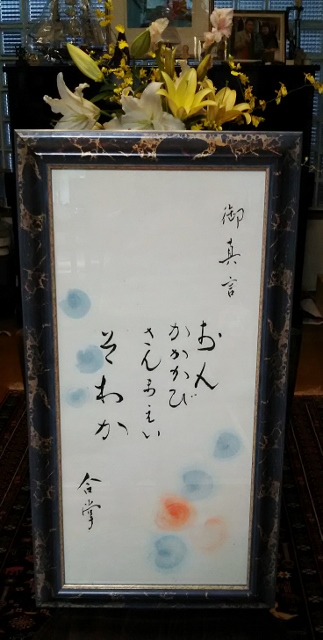 御真言
おん
かかかび
さんまえい
そわか
合掌